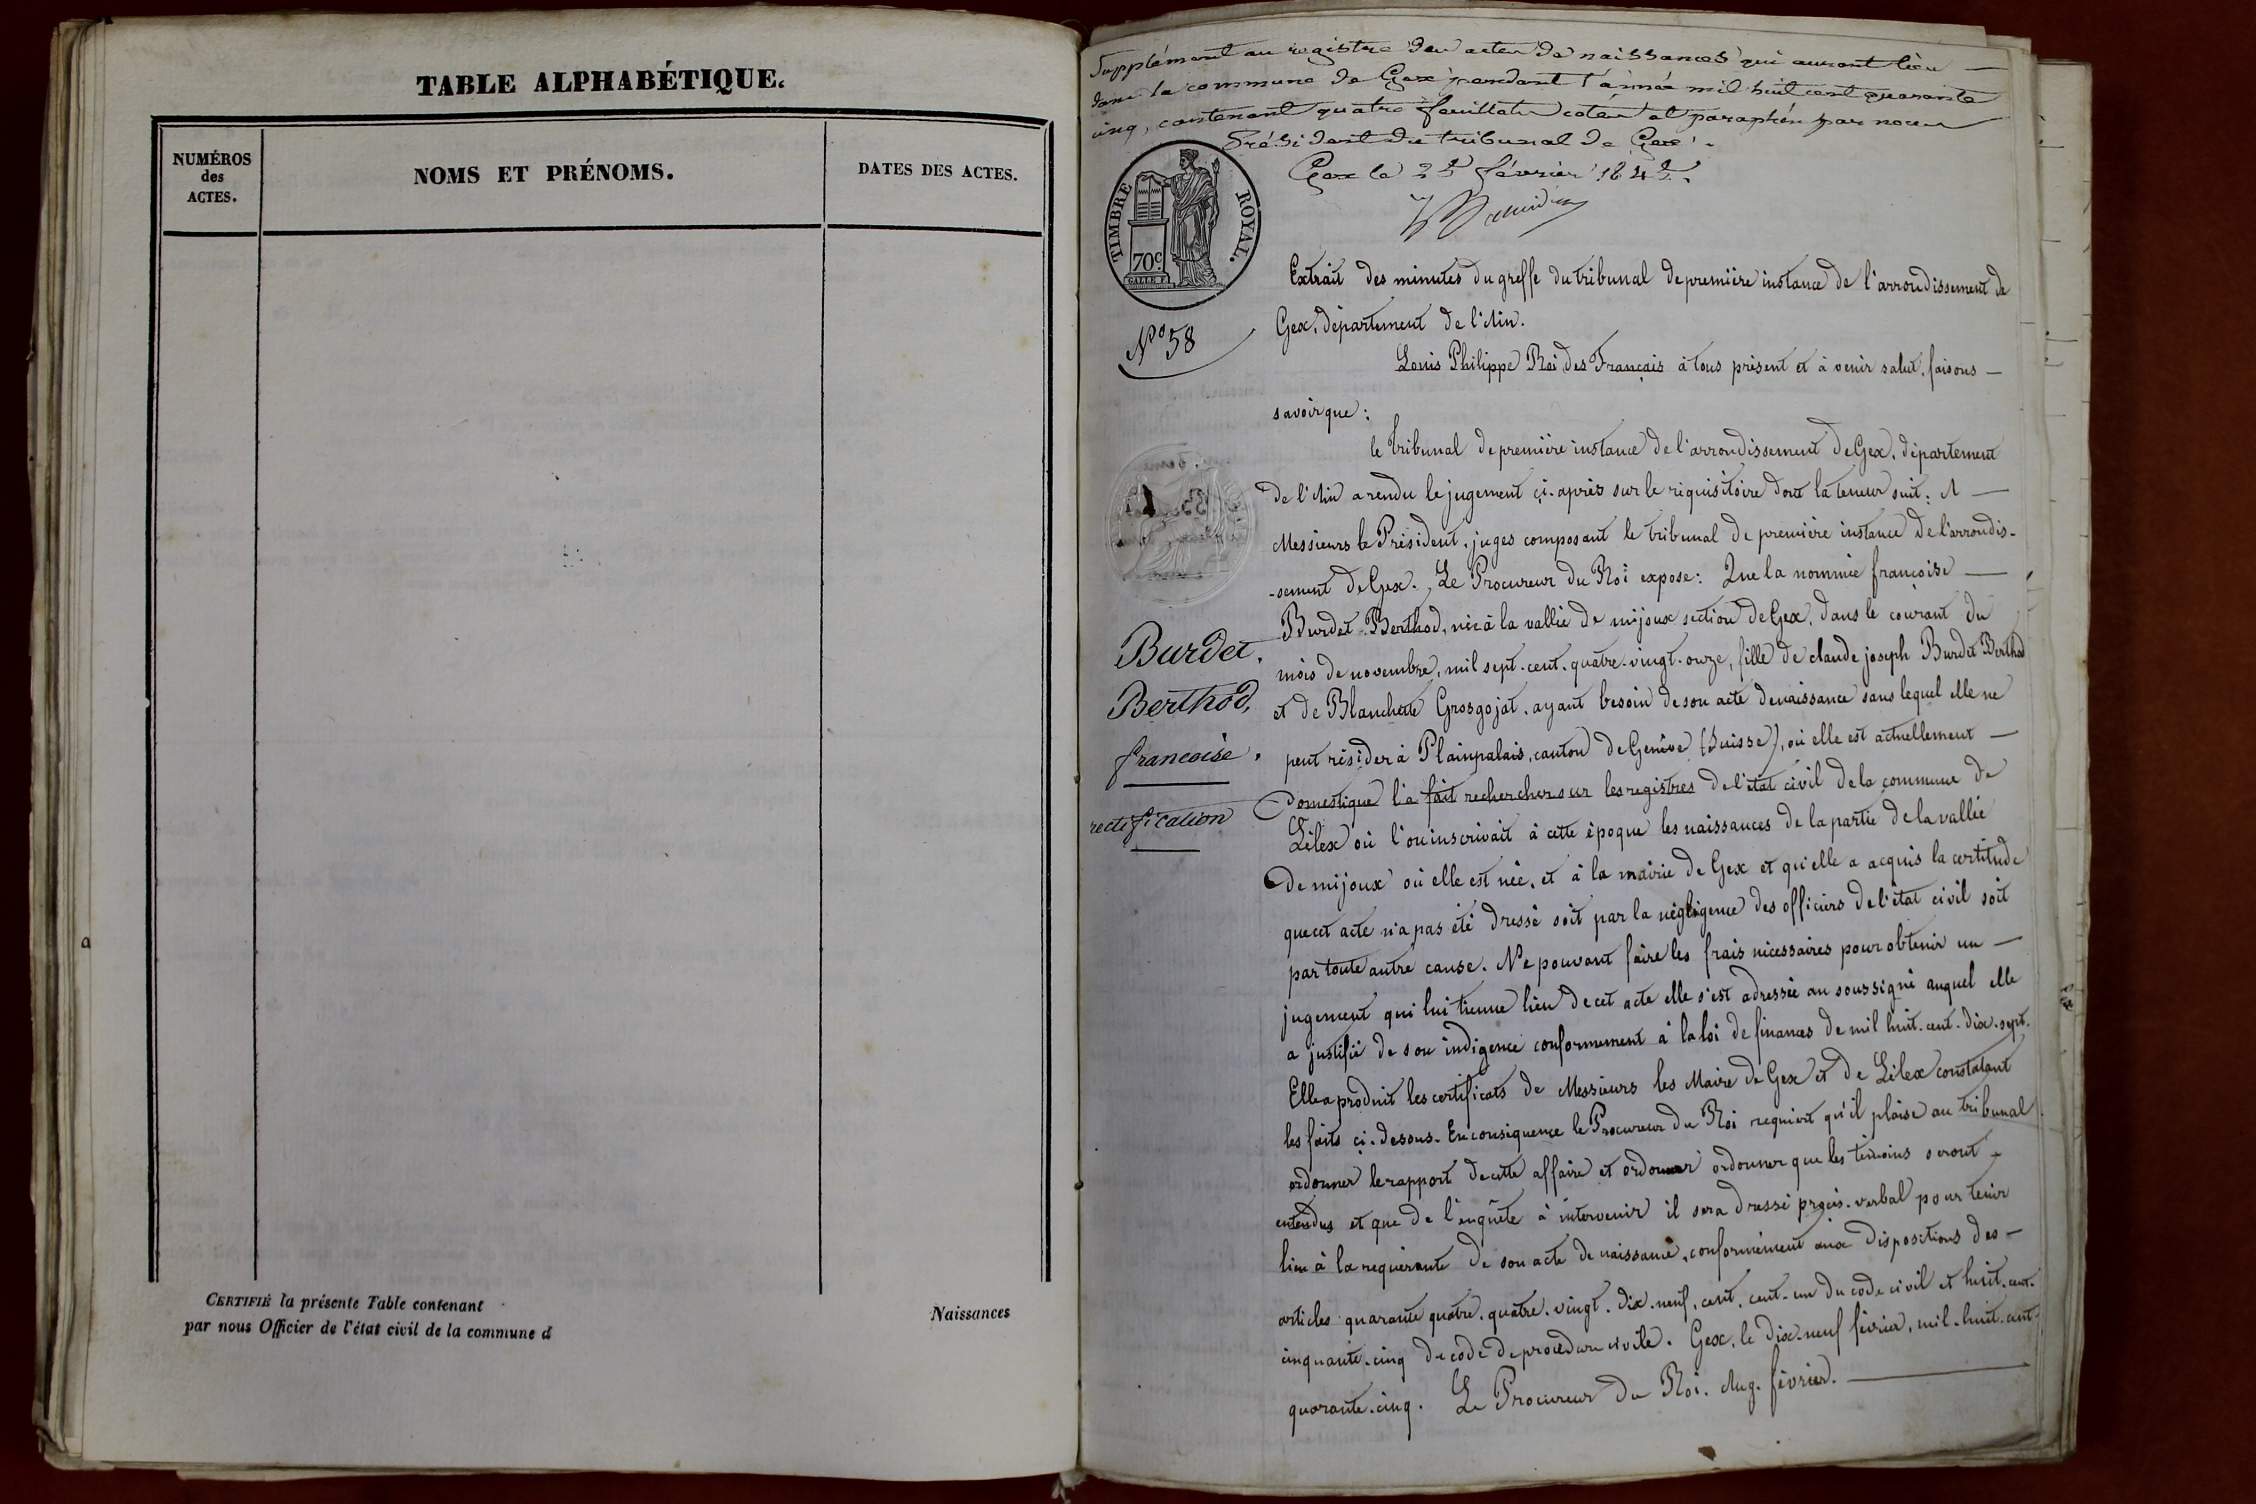 TABLE ALPHABÉTIQUE.
NUMÉROS
des
ACTES.
NOMS ET PRÉNOMS.
DATES DES ACTES.
CERTIFIÉ la présente Table contenant
par nous Officier de l'état civil de la commune d
Naissances
Supplément au registre des actes de naissances qui auront lieu
dans la commune de Gex pendant l'année mil huit cent quarante
cinq, contenant quatre feuillets cotés et paraphés par nous
Président du tribunal de Gex.
Gex le février 1845.
TIMBRE ROYAL.
70c
Extrait des minutes du greffe du tribunal de première instance de l'arrondissement de
Gex, département de l'Ain.
No 58
Louis Philippe Roi des Français à tous présent et à venir salut, faisons
savoir que :
le tribunal de première instance de l'arrondissement de Gex, département
de l'Ain a rendu le jugement çi-après sur le réquisitoire dont la teneur suit: A
Messieurs le Président, juges composant le tribunal de première instance de l'arrondis-
-sement de Gex. Le Procureur du Roi expose: Que la nommée françoise
Burdet-Berthod, née à la vallée de mijoux section de Gex, dans le courant du
mois de novembre, mil sept-cent-quatre-vingt-onze, fille de claude joseph Burdet Berthod
et de Blanchette Grosgojat, ayant besoin de son acte de naissance sans lequel elle ne
peut résider à Plainpalais, canton de Genêve (Suisse), où elle est actuellement
Domestique l'a fait rechercher sur les registres de l'état civil de la commune de
Lélex où l'on inscrivait à cette époque les naissances de la partie de la vallée
de mijoux où elle est née, et à la mairie de Gex et qu'elle a acquis la certitude
que cet acte n'a pas été dressé soit par la négligence des officiers de l'état civil soit
par toute autre cause. Ne pouvant faire les frais nécessaires pour obtenir un
jugement qui lui tienne lieu de cet acte elle s'est adressée au soussigné auquel elle
a justifié de son indigence conformement à la loi de finances de mil huit-cent-dix-sept.
Elle a produit les certificats de Messieurs les Maire de Gex et de Lélex constatant
les faits çi-desous. En conséquence le Procureur du Roi requiert qu'il plaise au tribunal
ordonner le rapport de cette affaire et ordonner ordonner que les témoins seront
entendus et que de l'enquête à intervenir il sera dressé procès-verbal pour tenir
lieu à la requérante de son acte de naissance, conformément aux dispositions des
articles quarante quatre, quatre-vingt-dix-neuf, cent, cent-un du code civil et huit-cent-
cinquante-cinq du code de procédure civile. Gex, le dix-neuf février, mil-huit-cent-
quarante-cinq. Le Procureur du Roi. Aug. février.
Burdet.
Berthod,
francoise.
rectification